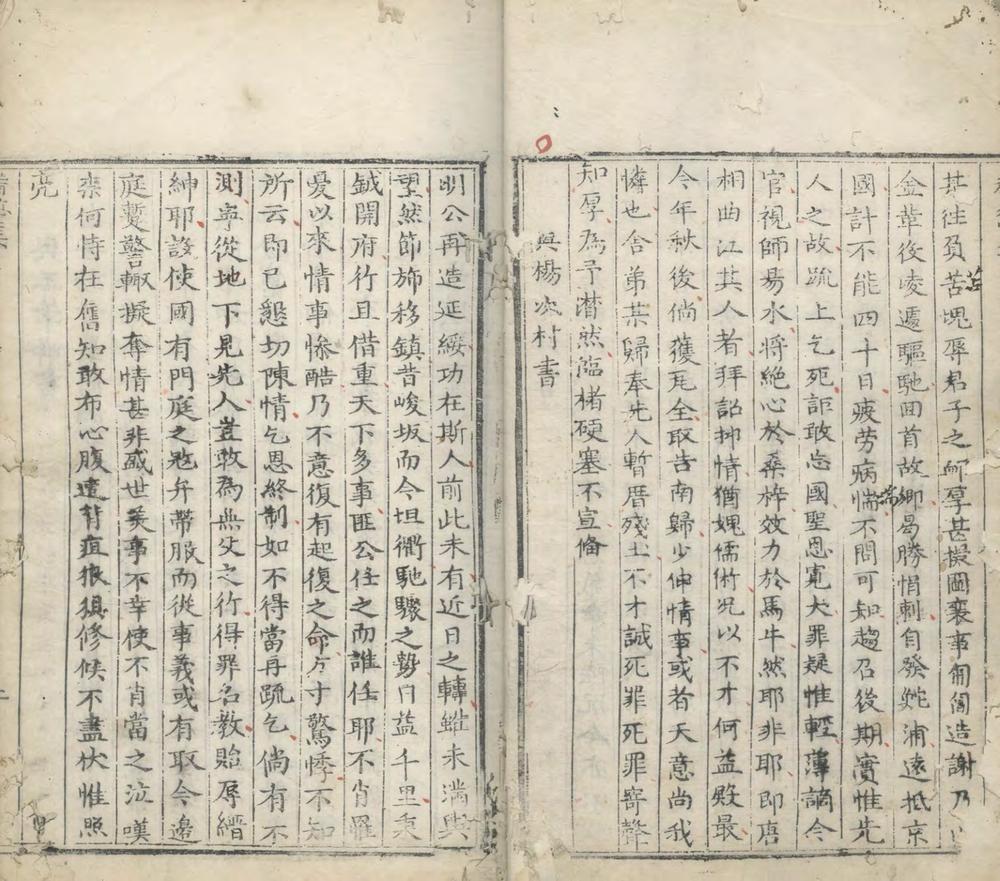 某往負苦塊辱君子之賻厚甚擬圖襄事匍匐造謝乃
金革役峻遞驅馳回首故鄉曷勝悁刺自發蛇浦遠抵京
國計不能四十日疲劳病惴不問可知趨召後期實惟先
人之故疏上乞死詎敢忘國聖恩寬大罪疑惟輕薄謫令
官視師易水將絕心於桑梓效力於馬牛然耶非耶即唐
相曲江其人者拜詔抑情猶媿儒術况以不才何益敗最
今年秋後倘獲瓦全取告南歸少伸情事或者天意尚我
憐也舍弟某歸奉先人暫厝殘土不才誠死罪死罪寄聲
知厚為予潸然臨楮硬塞不宣俻
與楊次村書
明公再造延綏功在斯人前此未有近日之轉蛀未満輿
望然節旄移鎮昔峻坂而今坦衢馳驟之勢日益千里秉
鉞開府行且借重天下多事匪公任之而誰任耶不肖罹
憂以來情事慘酷乃不意復有起復之命方寸驚悸不知
所云即已懇切陳情乞恩終制如不得當再疏乞倘有不
測寧從地下見先人豈敢為無父之行得罪名教貽辱縉
紳耶設使國有門庭之寇弁帶服而從事義或有取今邊
庭蹔警輙擬奪情甚非盛世美事不幸使不肖當之泣嘆
柰何恃在舊知敢布心腹遣
疽狼
修候不盡伏惟照
亮